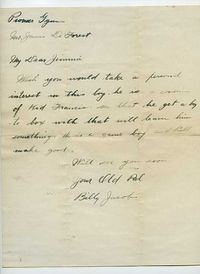 Pioneer Gym
Mrs. James De Forest
My Dear Jimmie
Wish you would take a personal
interest in this boy. he is a cousin
of Kid Francis see that he get a boy
to box with that will learn him
something. he is a game boy and will
make good.
Will see you soon
your Old Pal
Billy Jacobs